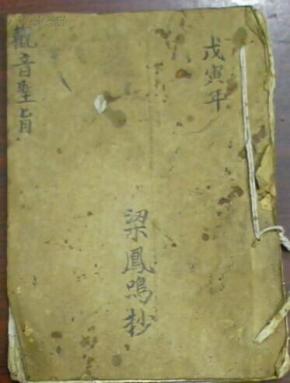 戊寅年
觀音聖旨
梁鳳鳴抄